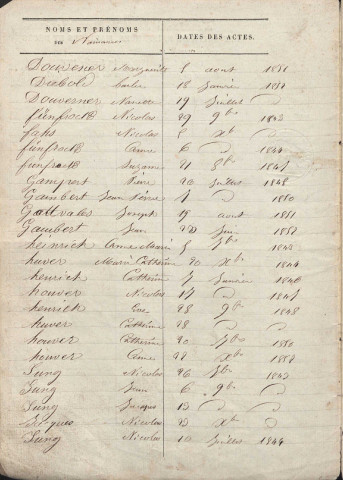 NOMS ET PRÉNOMS
DATES DES ACTES.
Douvener Marguerite 5 août 1851
Diebold Emilie 18 Janvier 1852
Douverner Nanette 19 Juillet D
fünfrock Nicolas 29 9bre 1843
fahs Nicolas 5 Xbre D
fünfrock Anne 6 D 1844
fünfrock Suzanne 21 8bre 1847
Gampert Pierre 20 Juillet 1848
Gambert Jean Pierre 4 D 1850
Gottvales Joseph 19 août 1851
Gambert Jean 20 Juin 1852
heinrich Anne Marie 5 7bre 1843
huver Marie Catherine 20 Xbre 1844
henrich Catherine 7 Janvier 1846
houver Nicolas 17 D 1847
henrich Eve 28 9bre 1848
huver Catherine 28 D
houver Catherine 20 1850
houver Anne 22 Xbre 1852
Jung Nicolas 26 1843
Jung Jean 6 9bre D
Jung Jacques 13 D D
Nicolas 23 Xbre D
Jung Nicolas 10 Juillet 1844